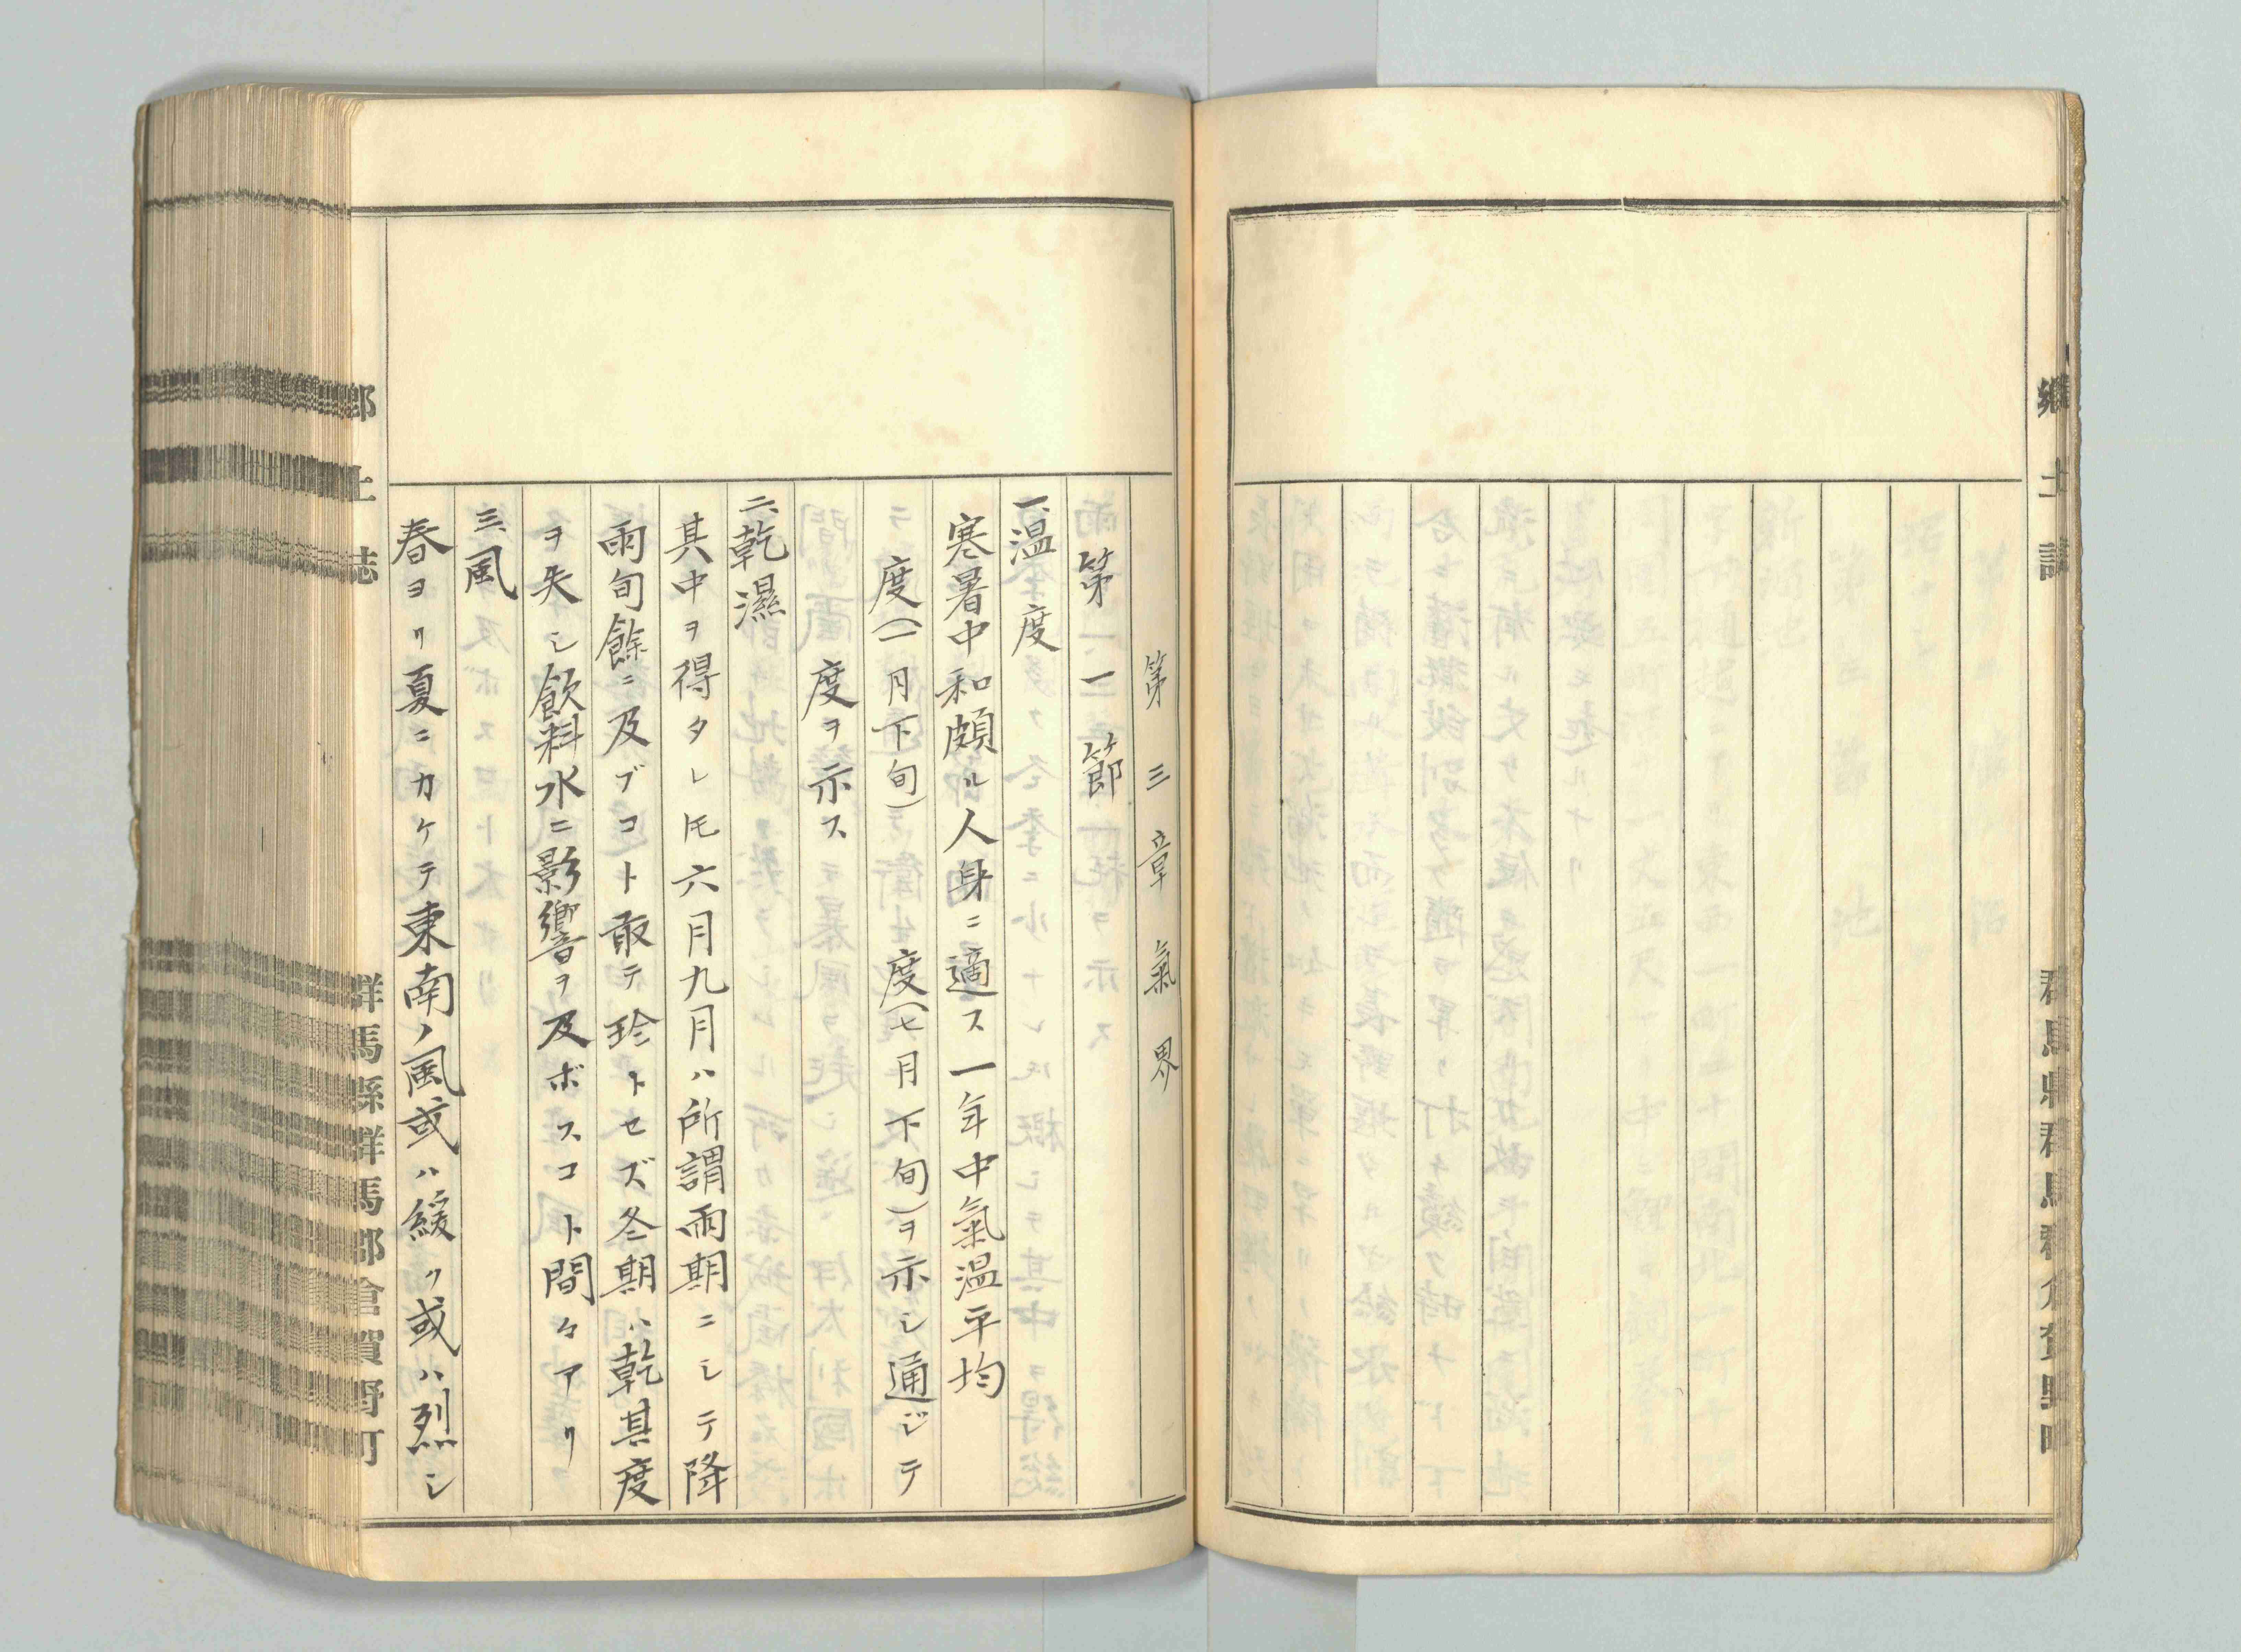 郷土誌
第三章氣界
第一節
一、温度
寒暑中和頗ル人身ニ適ス一年中氣温平均
度(一月下旬)　度(七月下旬)ヲ示シ通ジテ
度ヲ示ス
二、乾濕
其中ヲ得タレ𪜈六月九月ハ所謂雨期ニシテ降
雨旬餘ニ及ブコト敢テ珍トセズ冬期ハ乾其度
ヲ失シ飲料水ニ影響ヲ及ボスコト間々アリ
三、風
春ヨリ夏ニカケテ東南ノ風或ハ緩ク或ハ烈シ
郷土誌
群馬縣群馬郡倉賀野町